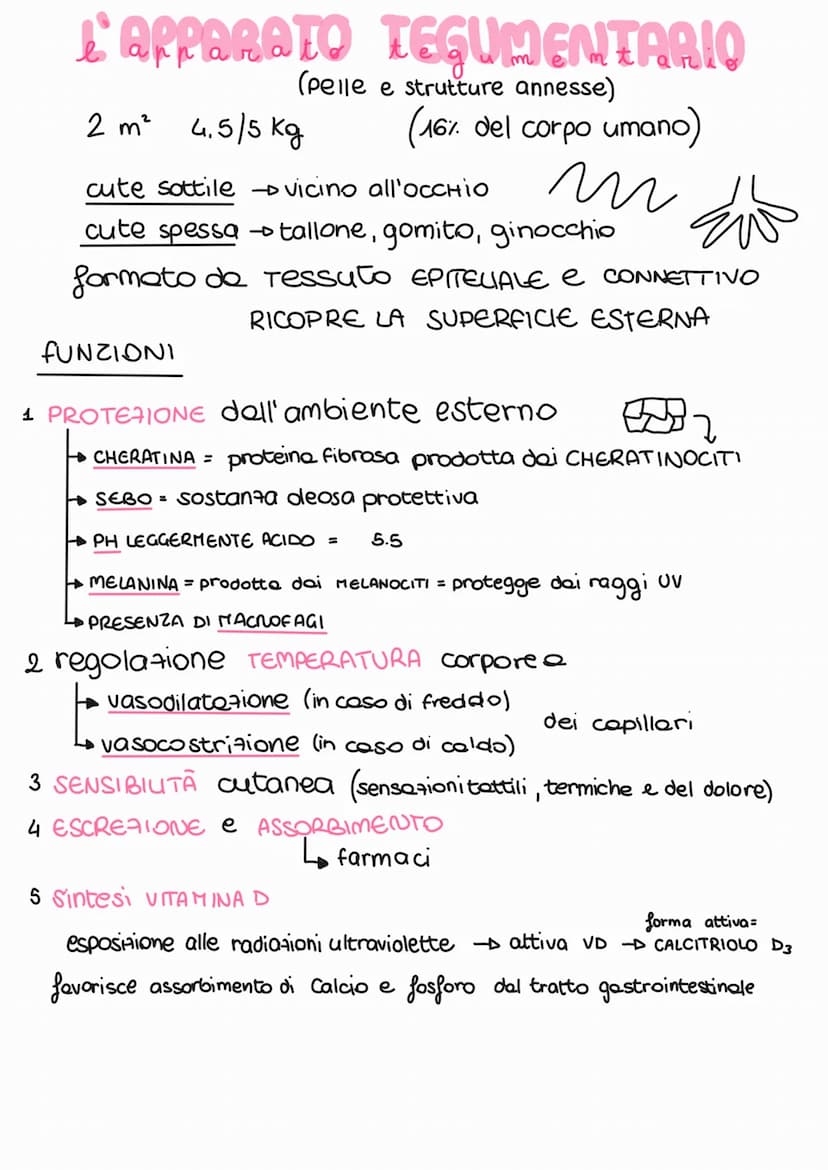 L'APPARATO TEGUMENTARIO
l'apparato tegumentario
(pelle e strutture annesse)
2 m² 4,5/5 Kg (16% del corpo umano)
cute sottile → vicino all'occhio
cute spessa → tallone, gomito, ginocchio
formato da TESSUTO EPITELIALE e CONNETTIVO
RICOPRE LA SUPERFICIE ESTERNA
FUNZIONI
1 PROTEZIONE dall'ambiente esterno
→ CHERATINA = proteina fibrosa prodotta dai CHERATINOCITI
→ SEBO = sostanza oleosa protettiva
→ PH LEGGERMENTE ACIDO = 5.5
→ MELANINA = prodotta dai MELANOCITI = protegge dai raggi UV
→ PRESENZA DI MACROFAGI
2 regolazione TEMPERATURA corporea
→ vasodilatazione (in caso di freddo)
dei capillari
→ vasocostrizione (in caso di caldo)
3 SENSIBILITÀ cutanea (sensazioni tattili, termiche e del dolore)
4 ESCREZIONE e ASSORBIMENTO
↳ farmaci
5 Sintesi VITAMINA D
forma attiva=
esposizione alle radiazioni ultraviolette → attiva VD → CALCITRIOLO D3
favorisce assorbimento di Calcio e fosforo dal tratto gastrointestinale